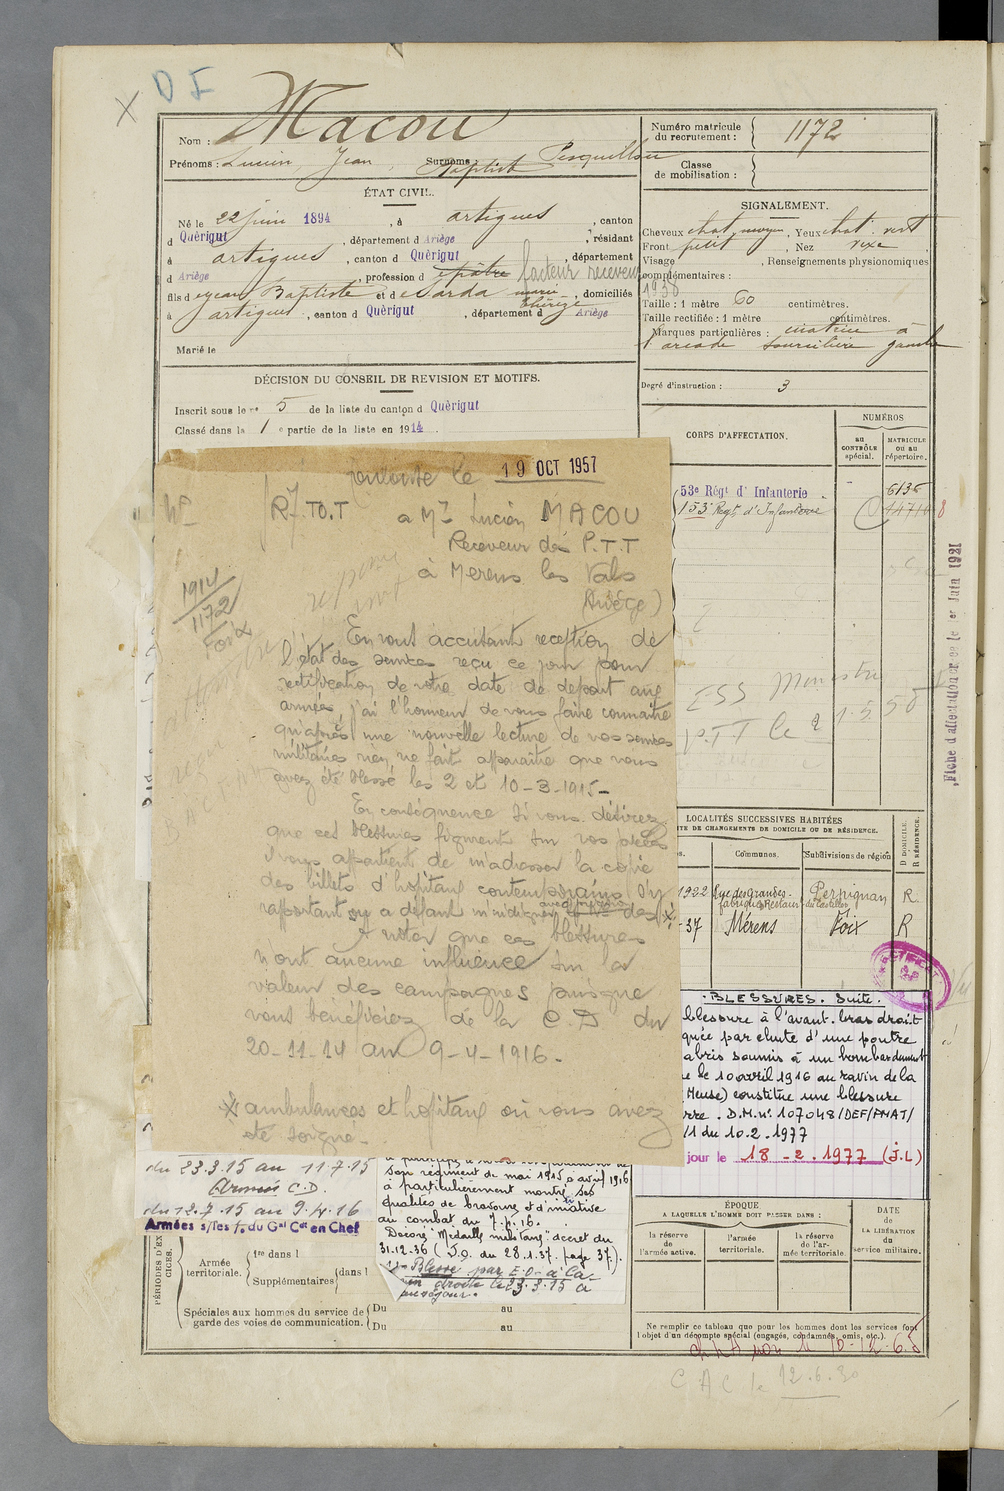 X D I
Nom : Macou
Prénoms : Lucien Jean Baptiste Surnoms :
ÉTAT CIVIL.
Né le 22 juin 1894 , à Artigues , canton
d Quérigut , département d Ariège , résidant
à Artigues , canton d Quérigut , département
d Ariège , profession d facteur receveur
fils d Jean Baptiste et d Sarda Marie Thérèse , domiciliés
à Artigues , canton d Quérigut , département d Ariège
Marié le
DÉCISION DU CONSEIL DE REVISION ET MOTIFS.
Inscrit sous le n° 5 de la liste du canton d Quérigut
Classé dans la 1 e partie de la liste en 1914 .
Numéro matricule du recrutement : 1172
Classe de mobilisation :
SIGNALEMENT.
Cheveux chat. moyen , Yeux chat. vert
Front petit , Nez
Visage , Renseignements physionomiques
complémentaires :
1938
Taille : 1 mètre 60 centimètres.
Taille rectifiée : 1 mètre centimètres.
Marques particulières : cicatrice à
l'arcade sourcilière gauche
Degré d'instruction : 3
CORPS D'AFFECTATION.
NUMÉROS
au CONTRÔLE spécial.
MATRICULE ou au répertoire.
53e Régt d' Infanterie 6135
153e Regt d'Infanterie
ESS Ministre
P.T.T le 2 1.5.50
Fiche d'affectation ce le 1er Juin 1921
Toulouse le 19 OCT 1957
à Mr Lucien MACOU
Receveur des P.T.T
à Merens les Vals
(Ariège)
1914
1172
Foix
En vous accusant reception de
l'état des services reçu ce jour pour
rectification de votre date de depart aux
armées, j'ai l'honneur de vous faire connaitre
qu'après une nouvelle lecture de vos services
militaires rien ne fait apparaitre que vous
avez été blessé les 2 et 10-3-1915-
En conséquence si vous désirez
que ces blessures figurent sur vos pièces
il vous appartient de m'adresser la copie
des billets d'hopitaux contemporains s'y
rapportant ou a défaut m'indiquer des
A noter que ces blessures
n'ont aucune influence sur la
valeur des campagnes puisque
vous bénéficiez de la C.D du
20-11-14 au 9-4-1916-
ambulances et hopitaux où vous avez
été soigné-
LOCALITÉS SUCCESSIVES HABITÉES
TE DE CHANGEMENTS DE DOMICILE OU DE RÉSIDENCE.
Communes. Subdivisions de région
D DOMICILE. R RÉSIDENCE.
1922 Rue des Grandes-Fabriques Perpignan R.
-37 Mérens Foix R
BLESSURES. Suite.
blessure à l'avant-bras droit
quée par chute d'une poutre
abris soumis à un bombardement
le 10 avril 1916 au ravin de la
Meuse) constitue une blessure
rre. D.M. n° 107048/DEF/PMAT/
/1 du 10.2.1977
jour le 18 -2. 1977 (J.L)
du 23.3.15 au 11.7.15
Armées C.D.
du 12.7.15 au 9.4.16
Armées s/les f. du Gal Cdt en Chef
son régiment de mai 1915 à avril 1916
a particulièrement montré ses
qualités de bravoure et d'initiative
au combat du 7.4.16.
Décoré "Médaille militaire" decret du
31.12.36 (J.O. du 28.1.37. page 37).
Blessé par E.O. à la
droite le 23.3.15 à
PÉRIODES D'EXERCICES.
Armée territoriale.
1re dans l
Supplémentaires dans l
Spéciales aux hommes du service de garde des voies de communication.
Du au
Du au
ÉPOQUE
A LAQUELLE L'HOMME DOIT PASSER DANS :
la réserve de l'armée active.
l'armée territoriale.
la réserve de l'armée territoriale.
DATE de LA LIBÉRATION du service militaire.
Ne remplir ce tableau que pour les hommes dont les services font
l'objet d'un décompte spécial (engagés, condamnés, omis, etc.).
C A C le 12.6.30